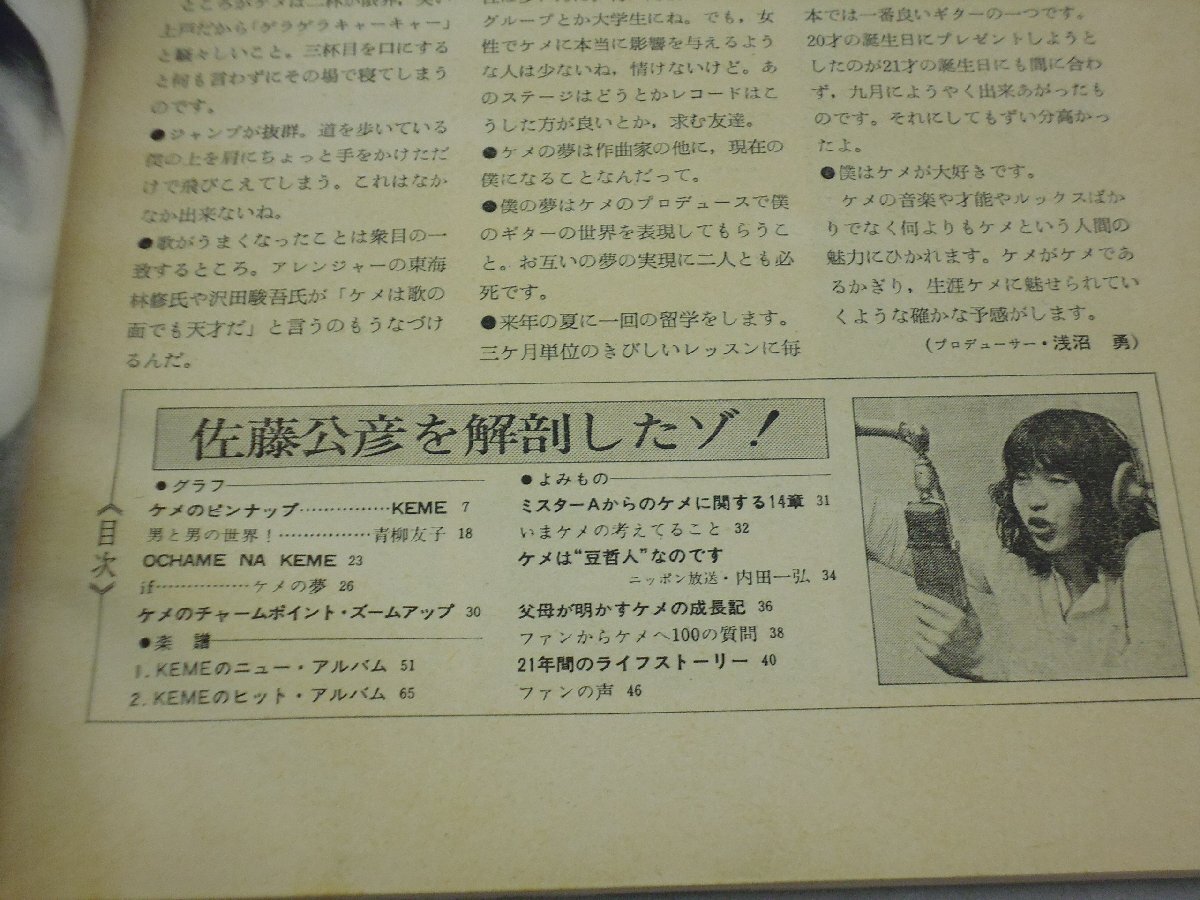 ところがケメは二杯が限界，笑い
上戸だから「ゲラゲラキャーキャー」
と騒々しいこと。三杯目を口にする
と何も言わずにその場で寝てしまう
のです。
●ジャンプが抜群。道を歩いている
僕の上を肩にちょっと手をかけただ
けで飛びこえてしまう。これはなか
なか出来ないね。
●歌がうまくなったことは衆目の一
致するところ。アレンジャーの東海
林修氏や沢田駿吾氏が「ケメは歌の
面でも天才だ」と言うのもうなづけ
るんだ。
グループとか大学生にね。でも，女
性でケメに本当に影響を与えるよう
な人は少ないね，情けないけど。あ
のステージはどうとかレコードはこ
うした方が良いとか，求む友達。
●ケメの夢は作曲家の他に，現在の
僕になることなんだって。
●僕の夢はケメのプロデュースで僕
のギターの世界を表現してもらうこ
と。お互いの夢の実現に二人とも必
死です。
●来年の夏に一回の留学をします。
三ケ月単位のきびしいレッスンに毎
本では一番良いギターの一つです。
20才の誕生日にプレゼントしようと
したのが21才の誕生日にも間に合わ
ず，九月にようやく出来あがったも
のです。それにしてもずい分高かっ
たよ。
●僕はケメが大好きです。
ケメの音楽や才能やルックスばか
りでなく何よりもケメという人間の
魅力にひかれます。ケメがケメであ
るかぎり，生涯ケメに魅せられてい
くような確かな予感がします。
(プロデューサー・浅沼　勇)
佐藤公彦を解剖したゾ！
〈目次〉
●グラフ
ケメのピンナップ……………KEME 7
男と男の世界！……………青柳友子 18
OCHAME NA KEME 23
if……………ケメの夢 26
ケメのチャームポイント・ズームアップ 30
●楽　譜
1. KEMEのニュー・アルバム 51
2. KEMEのヒット・アルバム 65
●よみもの
ミスターAからのケメに関する14章 31
いまケメの考えてること 32
ケメは“豆哲人”なのです
ニッポン放送・内田一弘 34
父母が明かすケメの成長記 36
ファンからケメへ100の質問 38
21年間のライフストーリー 40
ファンの声 46